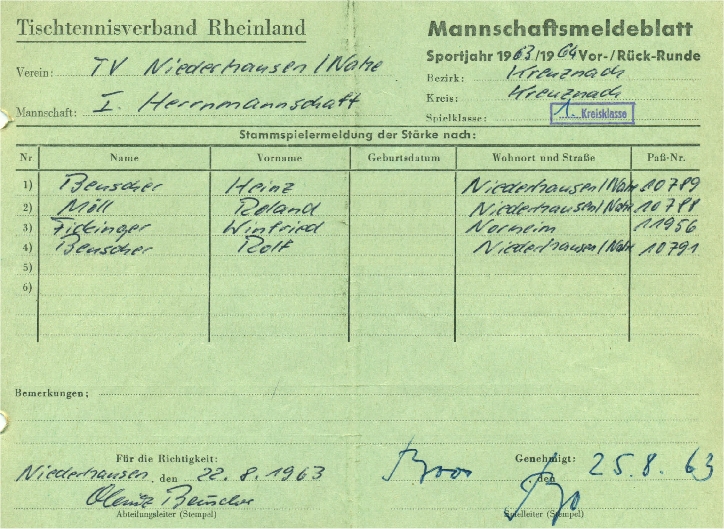 Tischtennisverband Rheinland
Mannschaftsmeldeblatt
Sportjahr 1963/1964 Vor-/Rück-Runde
Verein: TV Niederhausen/Nahe
Bezirk: Kreuznach
Kreis: Kreuznach
Mannschaft: I. Herrnmannschaft
Spielklasse: 1. Kreisklasse
Stammspielermeldung der Stärke nach:
Nr Name Vorname Geburtsdatum Wohnort und Straße Paß-Nr.
1) Beuscher Heinz Niederhausen/Nahe 10789
2) Möll Roland Niederhausen/Nahe 10788
3) Fickinger Winfried Norheim 11956
4) Beuscher Rolf Niederhausen/Nahe 10791
5)
6)
Bemerkungen:
Für die Richtigkeit: Genehmigt:
Niederhausen, den 22.8.1963 den 25.8.63
Beuscher
Abteilungsleiter (Stempel) Spielleiter (Stempel)